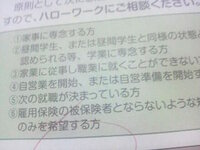 原則として次に
すので、ハローワークにご相談ください。
①家事に専念する方
②昼間学生、または昼間学生と同様の状態と
認められる等、学業に専念する方
③家業に従事し職業に就くことができない
④自営業を開始、または自営準備を開始す
⑤次の就職が決まっている方
⑥雇用保険の被保険者とならないような
のみを希望する方